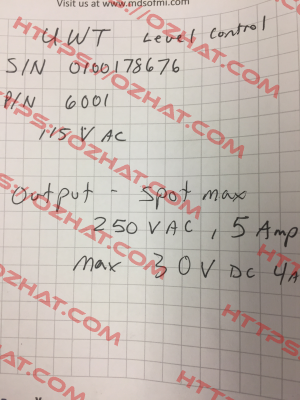 Visit us at www.mdsofmi.com
UWT Level Control
S/N 0100178676
P/N 6001
115 V AC
Output - Spot max
250 VAC, 5 Amp
Max 30V DC 4A
HTTPS://OZHAT.COM
HTTPS://OZHAT.COM
HTTPS://OZHAT.COM
HTTPS://OZHAT.COM